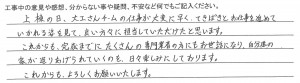 工事中の意見や感想、分からない事や疑問、不安など何でもご記入ください。
上棟の日、大工さんチームの仕事が丁寧に早く、てきぱきとお仕事を進めて
いかれる姿を見て、良い方々に担当していただけたと思います。
これからも、完成までにたくさんの専門業者の方にもお世話になり、自分達の
家が造りあげられていくのを、日々楽しみにしております。
これからも、よろしくお願いいたします。